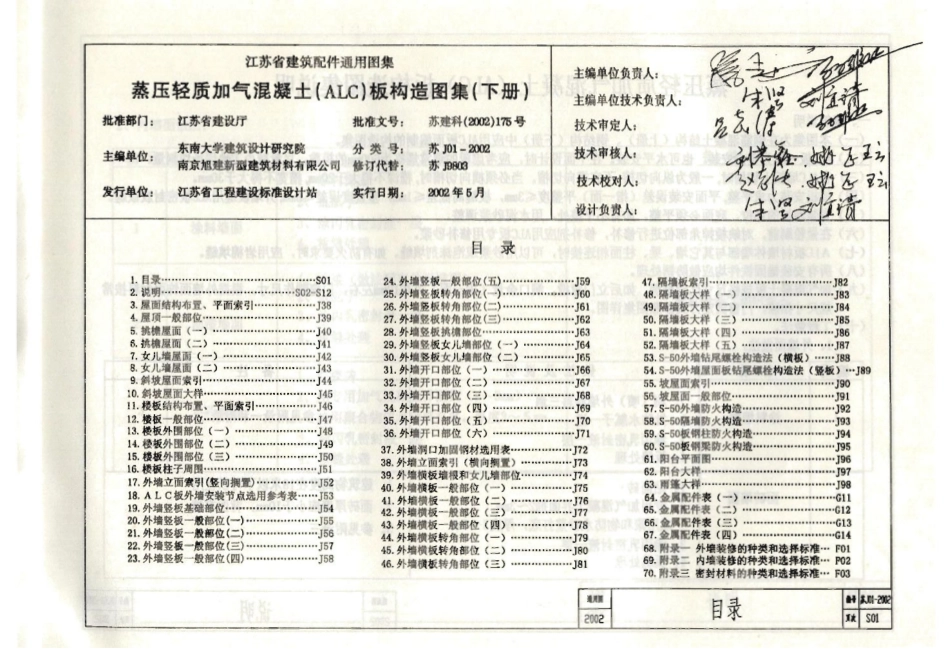 江苏省建筑配件通用图集
蒸压轻质加气混凝土(ALC)板构造图集(下册)
批准部门： 江苏省建设厅 批准文号： 苏建科(2002)175号
主编单位： 东南大学建筑设计研究院 分 类 号： 苏 J01-2002
南京旭建新型建筑材料有限公司 修订代替： 苏 J9803
发行单位： 江苏省工程建设标准设计站 实行日期： 2002年5月
主编单位负责人：
主编单位技术负责人：
技术审定人：
技术审核人：
技术校对人：
设计负责人：
目 录
1. 目录……S01
2. 说明……S02-S12
3. 屋面结构布置、平面索引……J38
4. 屋顶一般部位……J39
5. 挑檐屋面（一）……J40
6. 挑檐屋面（二）……J41
7. 女儿墙屋面（一）……J42
8. 女儿墙屋面（二）……J43
9. 斜坡屋面索引……J44
10. 斜坡屋面大样……J45
11. 楼板结构布置、平面索引……J46
12. 楼板一般部位……J47
13. 楼板外围部位（一）……J48
14. 楼板外围部位（二）……J49
15. 楼板外围部位（三）……J50
16. 楼板柱子周围……J51
17. 外墙立面索引(竖向搁置)……J52
18. ALC板外墙安装节点选用参考表……J53
19. 外墙竖板基础部位……J54
20. 外墙竖板一般部位(一)……J55
21. 外墙竖板一般部位(二)……J56
22. 外墙竖板一般部位(三)……J57
23. 外墙竖板一般部位(四)……J58
24. 外墙竖板一般部位(五)……J59
25. 外墙竖板转角部位(一)……J60
26. 外墙竖板转角部位(二)……J61
27. 外墙竖板转角部位(三)……J62
28. 外墙竖板挑檐部位……J63
29. 外墙竖板女儿墙部位（一）……J64
30. 外墙竖板女儿墙部位（二）……J65
31. 外墙开口部位（一）……J66
32. 外墙开口部位（二）……J67
33. 外墙开口部位（三）……J68
34. 外墙开口部位（四）……J69
35. 外墙开口部位（五）……J70
36. 外墙开口部位（六）……J71
37. 外墙洞口加固钢材选用表……J72
38. 外墙立面索引（横向搁置）……J73
39. 外墙横板墙根和女儿墙部位……J74
40. 外墙横板一般部位（一）……J75
41. 外墙横板一般部位（二）……J76
42. 外墙横板一般部位（三）……J77
43. 外墙横板一般部位（四）……J78
44. 外墙横板转角部位（一）……J79
45. 外墙横板转角部位（二）……J80
46. 外墙横板转角部位（三）……J81
47. 隔墙板索引……J82
48. 隔墙板大样（一）……J83
49. 隔墙板大样（二）……J84
50. 隔墙板大样（三）……J85
51. 隔墙板大样（四）……J86
52. 隔墙板大样（五）……J87
53. S-50外墙钻尾螺栓构造法（横板）……J88
54. S-50外墙屋面板钻尾螺栓构造法（竖板）…J89
55. 坡屋面索引……J90
56. 坡屋面一般部位……J91
57. S-50外墙防火构造……J92
58. S-50隔墙防火构造……J93
59. S-50板钢柱防火构造……J94
60. S-50板钢梁防火构造……J95
61. 阳台平面图……J96
62. 阳台大样……J97
63. 雨蓬大样……J98
64. 金属配件表（一）……G11
65. 金属配件表（二）……G12
66. 金属配件表（三）……G13
67. 金属配件表（四）……G14
68. 附录一 外墙装修的种类和选择标准… F01
69. 附录二 内墙装修的种类和选择标准… F02
70. 附录三 密封材料的种类和选择标准… F03
通用图 目录 编号 苏J01-2002
2002 页次 S01